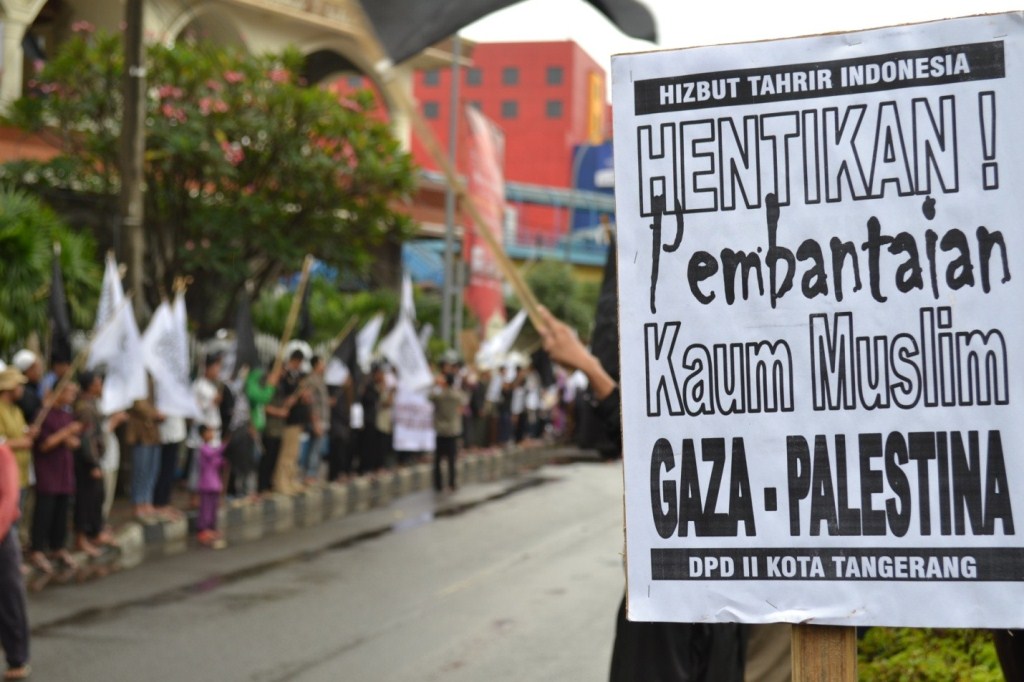 HIZBUT TAHRIR INDONESIA
HENTIKAN!
Pembantaian
Kaum Muslim
GAZA - PALESTINA
DPD II KOTA TANGERANG